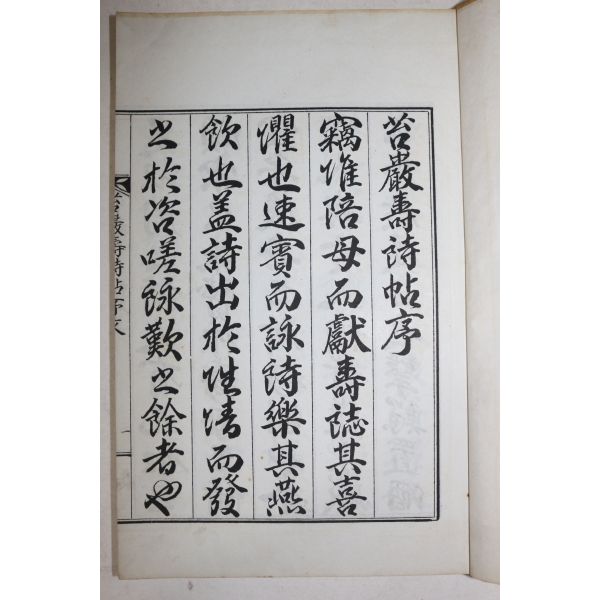 苔巖壽詩帖序
竊惟陪母而獻壽誌其喜
懼也速賓而詠詩樂其燕
飮也蓋詩出於性情而發
之於咨嗟詠歎之餘者也
苔巖壽詩帖序文
一